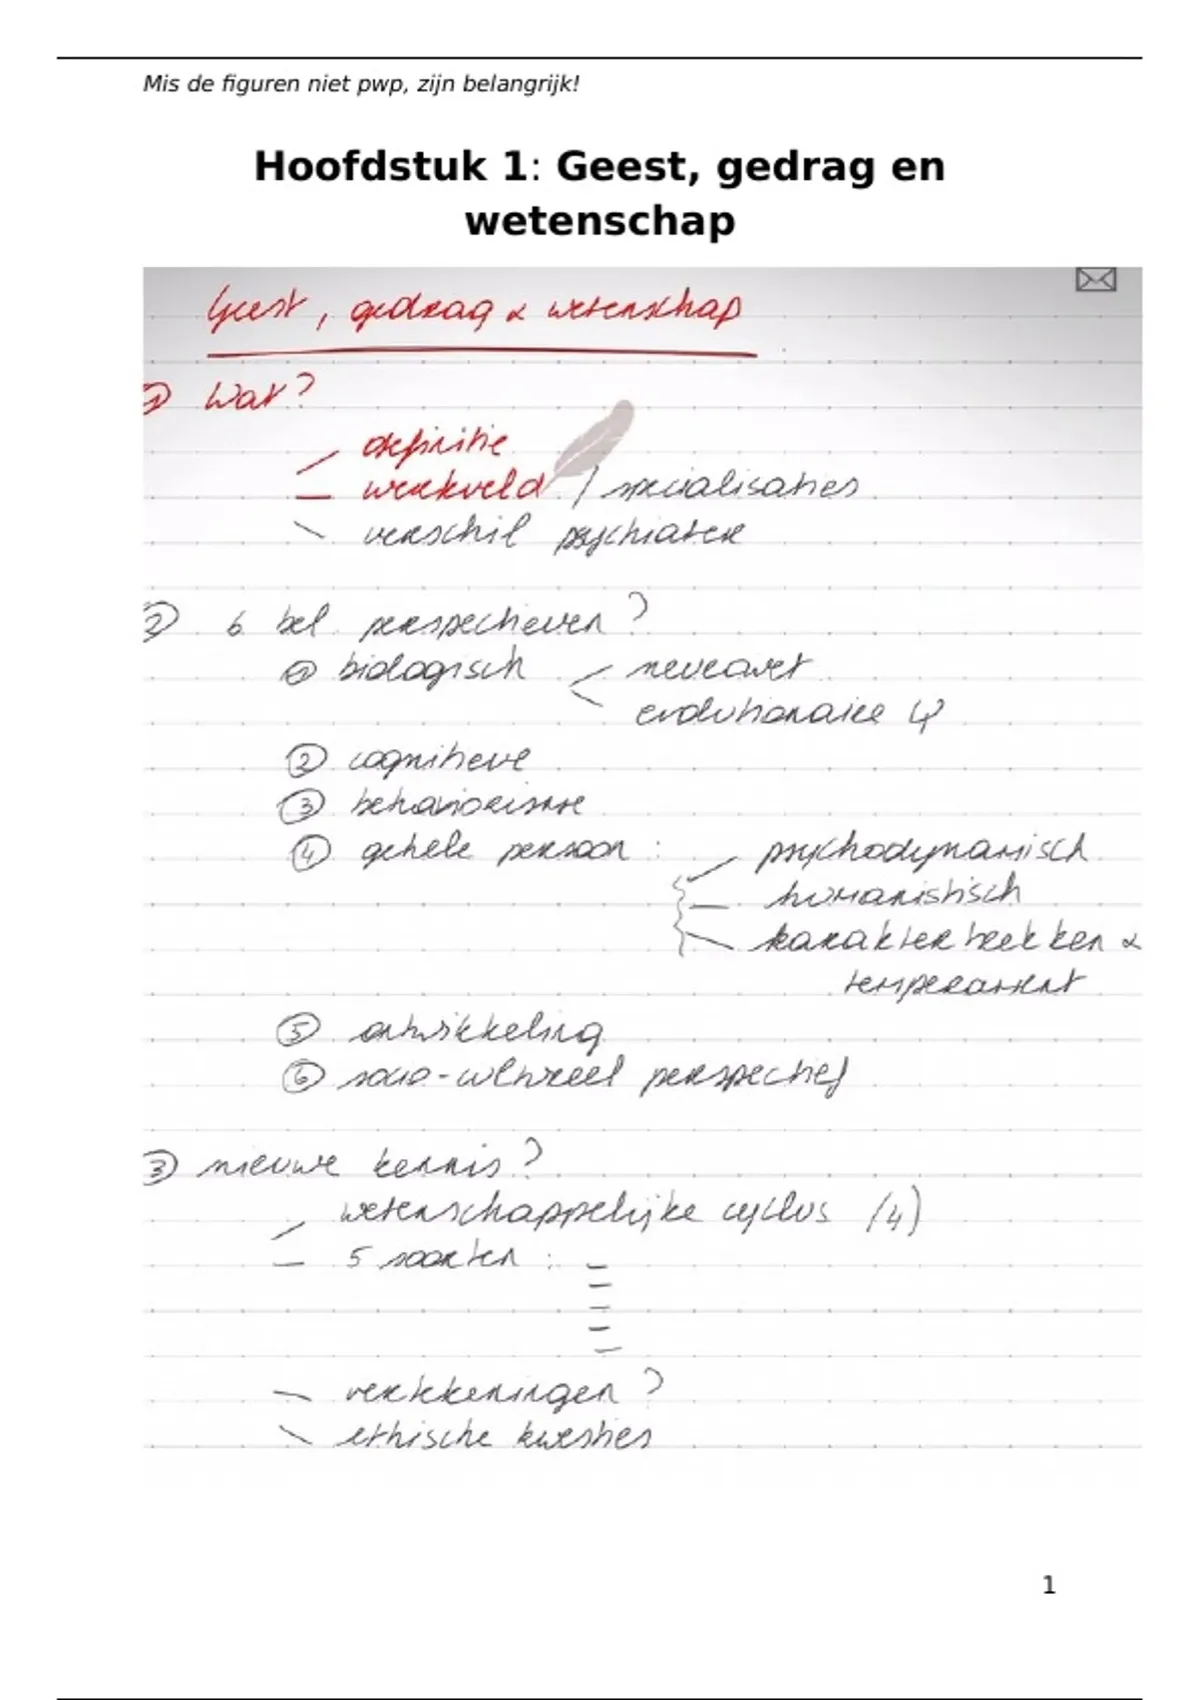 Mis de figuren niet pwp, zijn belangrijk!
Hoofdstuk 1: Geest, gedrag en
wetenschap
Geest, gedrag & wetenschap
① Wat?
definitie
werkveld / specialisaties
verschil psychiater
② 6 bel. perspectieven?
① biologisch
neurowet
evolutionaire ψ
② cognitieve
③ behavioristische
④ gehele persoon :
psychodynamisch
humanistisch
karaktertrekken &
temperament
⑤ ontwikkeling
⑥ socio-cultureel perspectief
③ nieuwe kennis?
wetenschappelijke cyclus (4)
5 soorten :
vertekeningen?
ethische kwesties
1